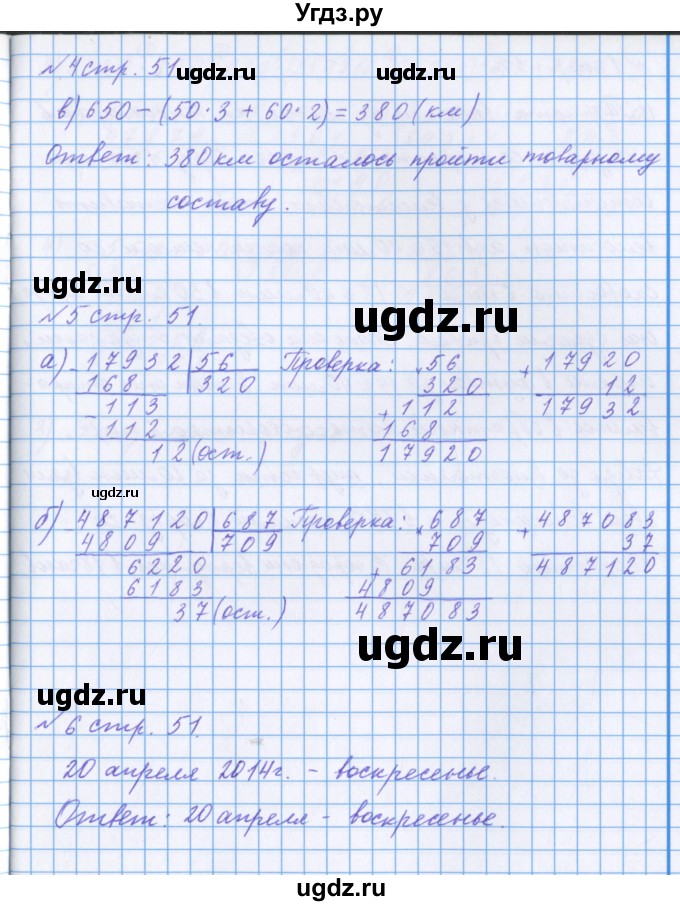 Угдз.ру
№4 стр. 51
ugdz.ru
ugdz.ru
в) 650 - (50·3 + 60·2) = 380 (км)
Ответ: 380 км осталось пройти товарному
составу.
ugdz.ru
ugdz.ru
№5 стр. 51.
а) - 17932 | 56 Проверка: × 56 + 17920
168 320 320 12
- 113 + 112 17932
112 168
12 (ост.) 17920
ugdz.ru
б) - 487120 | 687 Проверка: × 687 + 487083
4809 709 709 37
6220 + 6183 487120
6183 4809
37 (ост.) 487083
ugdz.ru
ugdz.ru
№6 стр. 51.
20 апреля 2014г. - воскресенье.
Ответ: 20 апреля - воскресенье.
ugdz.ru
ugdz.ru